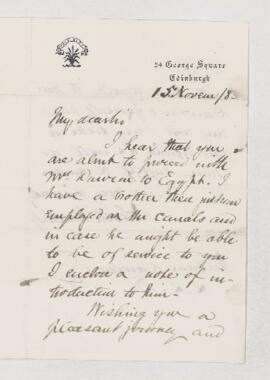 24 George Square
Edinburgh
15 Novem /8
My dear Sir
I hear that you
are about to proceed with
Mrs to Egypt. I
have a brother there
employed on the canals and
in case he might be able
to be of service to you
I enclose a note of in-
troduction to him -
Wishing you a
pleasant journey and